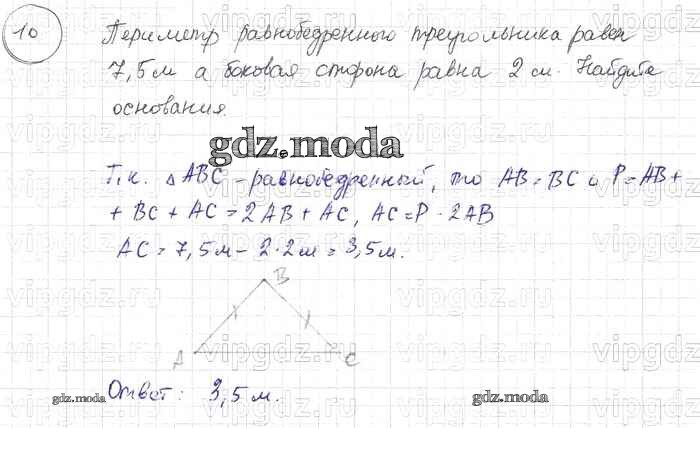 10
Периметр равнобедренного треугольника равен
7,5 м а боковая сторона равна 2 м. Найдите
основания.
gdz.moda
Т.к. △ABC - равнобедренный, то AB = BC и P = AB +
+ BC + AC = 2AB + AC, AC = P - 2AB
AC = 7,5 м - 2·2 м = 3,5 м.
B
A
C
Ответ: 3,5 м.
gdz.moda
gdz.moda
vipgdz.ru